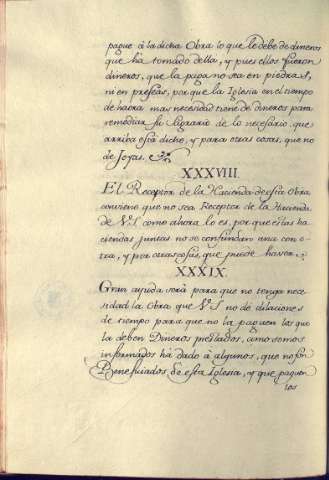 pague â la dicha Obra lo que le debe de dineros
que ha tomado della, y pues ellos fueron
dineros, que la paga no sea en piedras,
ni en preseas, porque la Iglesia en el tiempo
de haora mas necesidad tiene de dineros para
remediar su de lo necesario, que
arriba está dicho, y para otras cosas, que no
de Joyas.
XXXVIII.
El Receptor de la Hacienda de esta Obra
conviene que no sea Receptor de la Hacienda
de V.S. como ahora lo es, porque estas ha-
ciendas juntas no se confundan una con o-
tra, y por otras cosas, que puede haver.
XXXIX.
Gran ayuda será para que no tenga nece-
sidad la Obra que V.S. no dé dilaciones
de tiempo para que no la paguen los que
la deben Dineros prestados, como somos
informados ha dado â algunos, que no son
Beneficiados de esta Iglesia, y que paguen
los